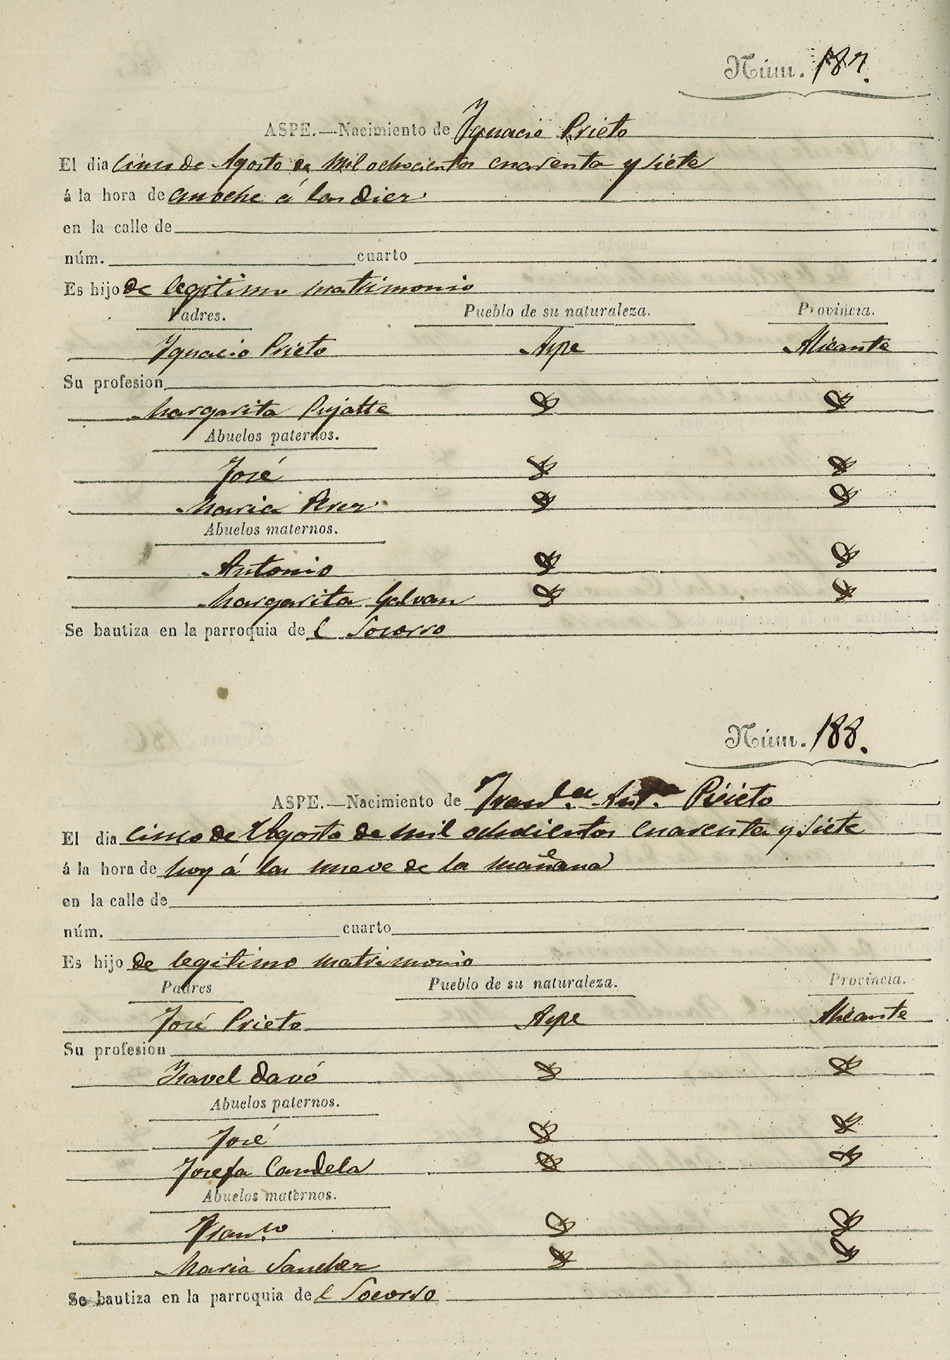 Núm. 187.
ASPE.—Nacimiento de Ygnacio Prieto
El dia cinco de Agosto de mil ochocientos cuarenta y siete
á la hora de anoche á las diez
en la calle de
núm. cuarto
Es hijo de legitimo matrimonio
Padres. Pueblo de su naturaleza. Provincia.
Ygnacio Prieto Aspe Alicante
Su profesion
Margarita Pujalte
Abuelos paternos.
José
Maria Perez
Abuelos maternos.
Antonio
Margarita Galvan
Se bautiza en la parroquia de l Socorro
Núm. 188.
ASPE.—Nacimiento de Prieto
El dia cinco de Agosto de mil ochocientos cuarenta y siete
á la hora de hoy á las nueve de la mañana
en la calle de
núm. cuarto
Es hijo de legitimo matrimonio
Padres Pueblo de su naturaleza. Provincia.
José Prieto Aspe Alicante
Su profesion
Ysavel Davó
Abuelos paternos.
José
Josefa Candela
Abuelos maternos.
Franco
Maria Sanchez
Se bautiza en la parroquia de l Socorro